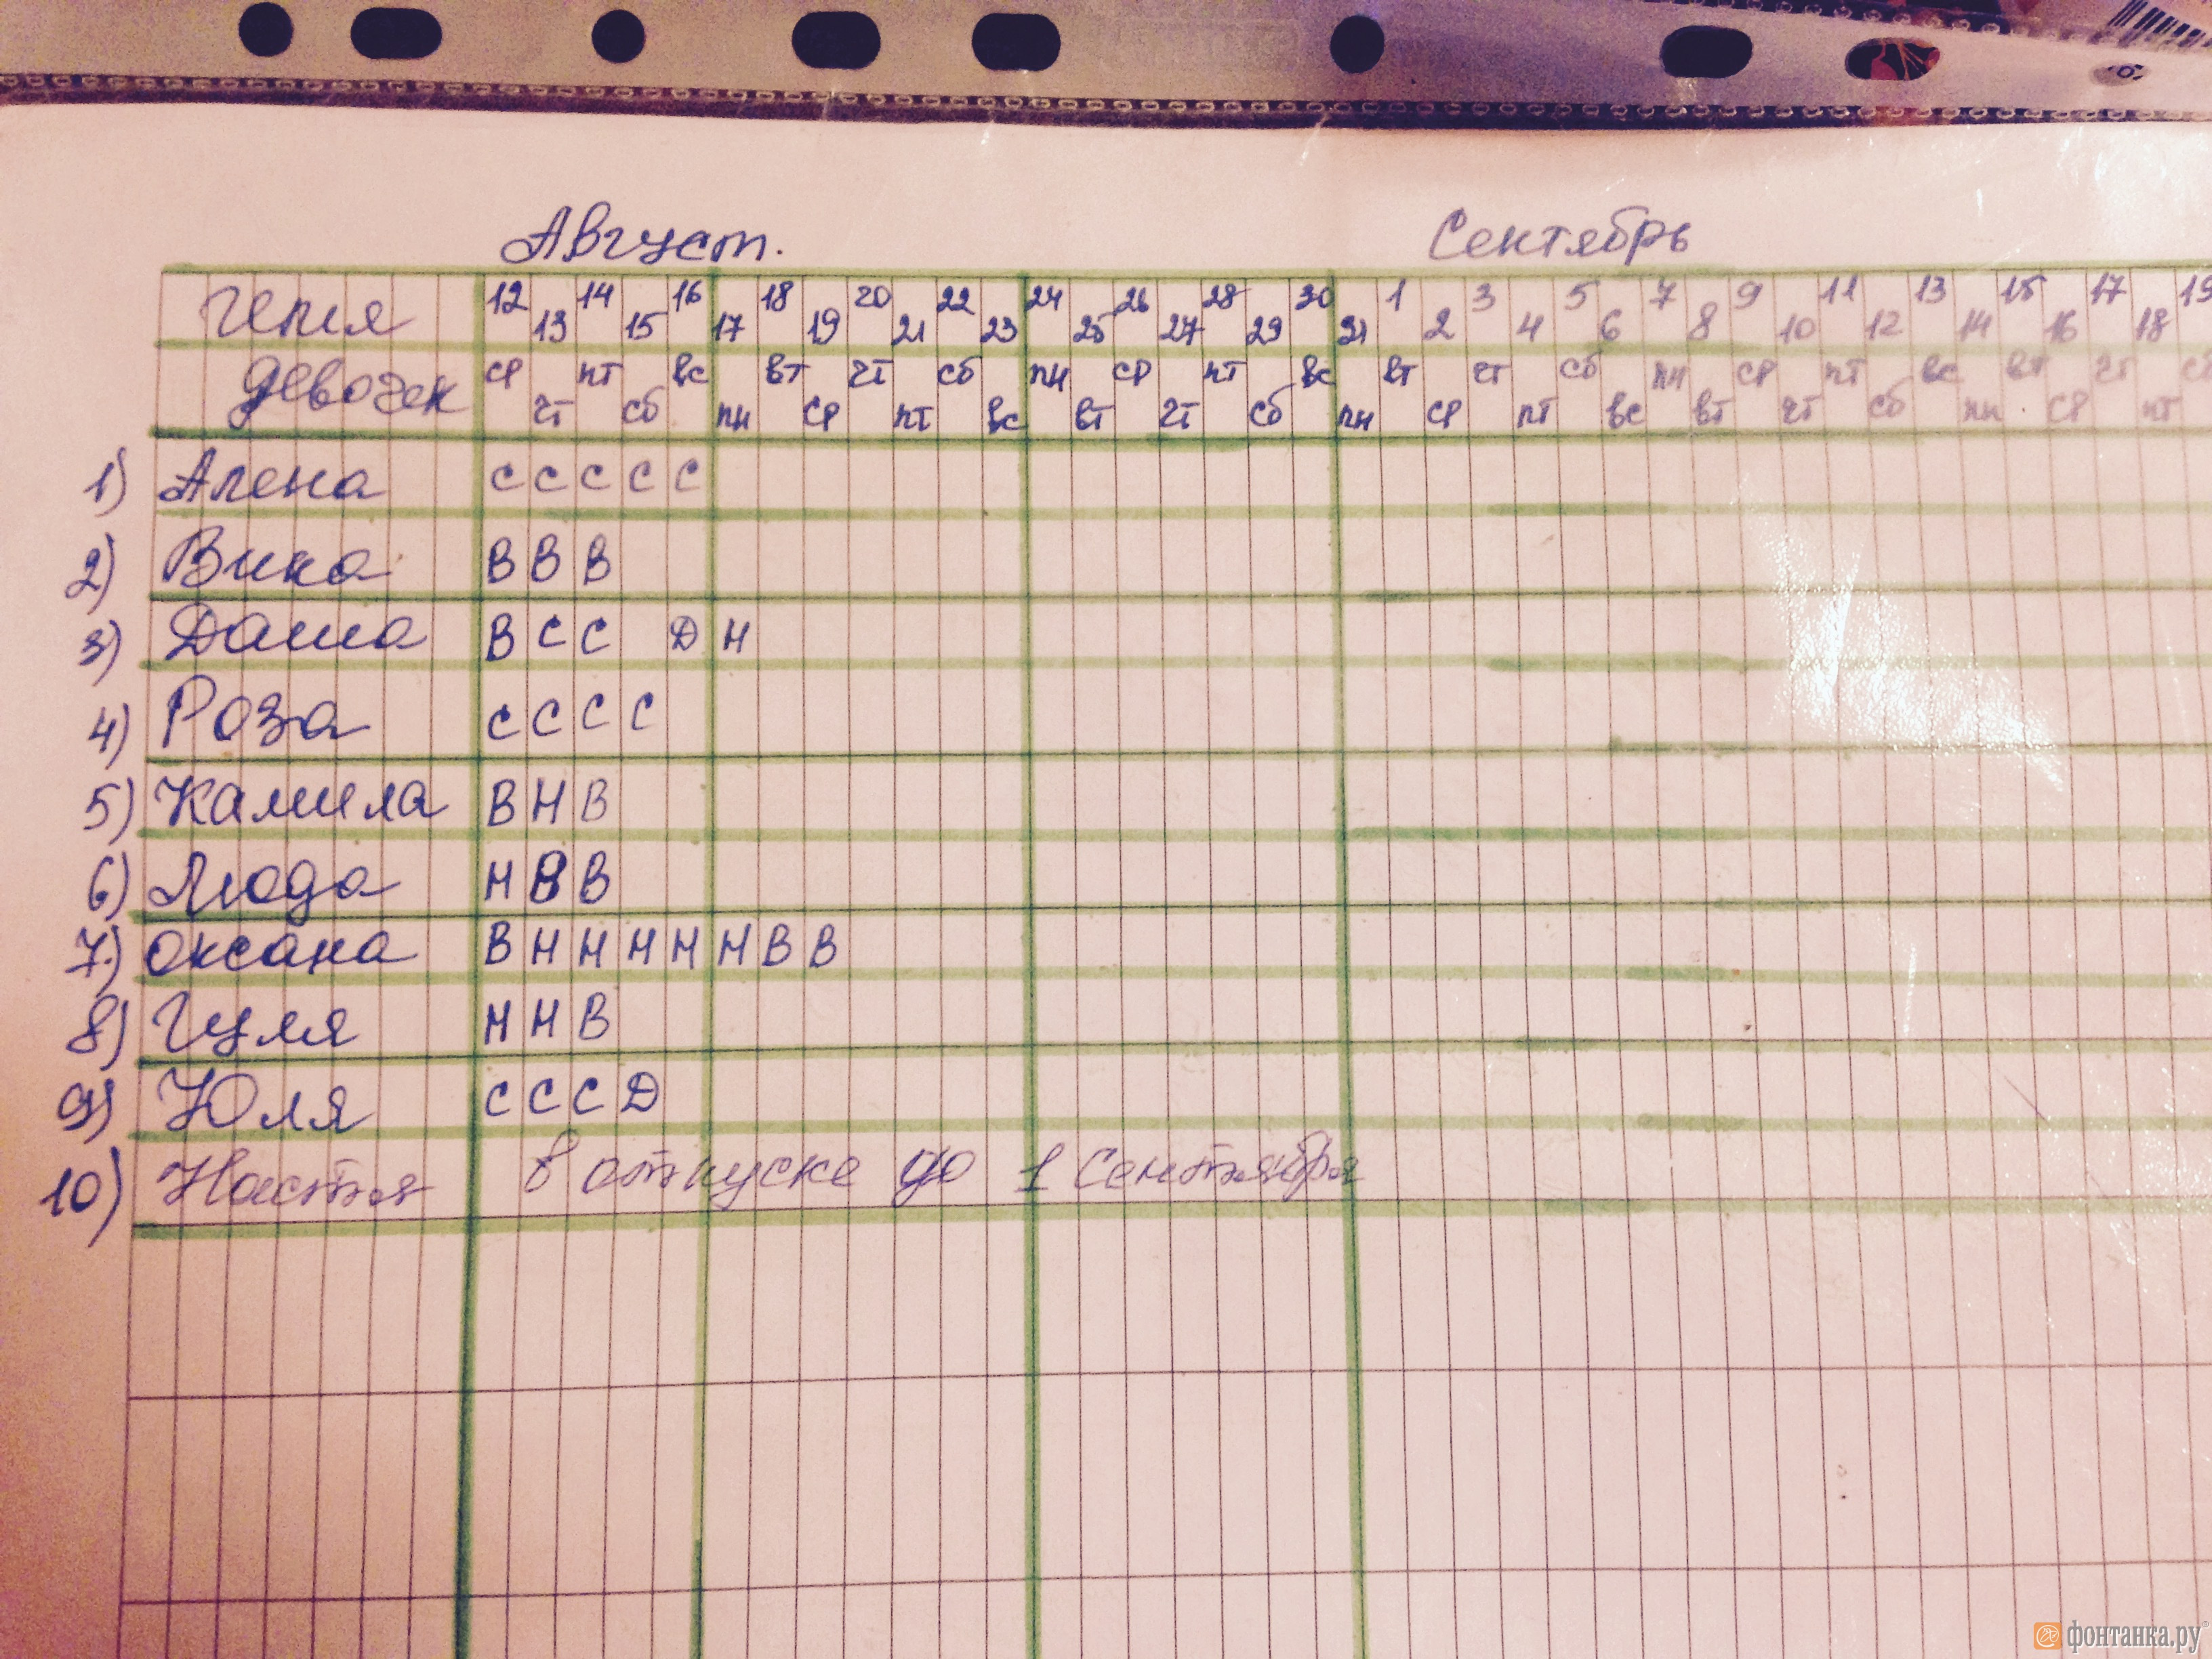 Август. Сентябрь
12 13 14 15 16 17 18 19 20 21 22 23 24 25 26 27 28 29 30 31 1 2 3 4 5 6 7 8 9 10 11 12 13 14 15 16 17 18 19
девочек ср чт пт сб вс пн вт ср чт пт сб вс пн вт ср чт пт сб вс пн вт ср чт пт сб вс пн вт ср чт пт сб вс пн вт ср чт пт сб
1) Алена С С С С С
2) Вика В В В
3) Даша В С С Д Н
4) Роза С С С С
5) Камила В Н В
6) Люда Н В В
7) Оксана В Н Н Н Н Н В В
8) Гуля Н Н В
9) Юля С С С Д
10) Настя в отпуске до 1 Сентября
фонтанка.ру